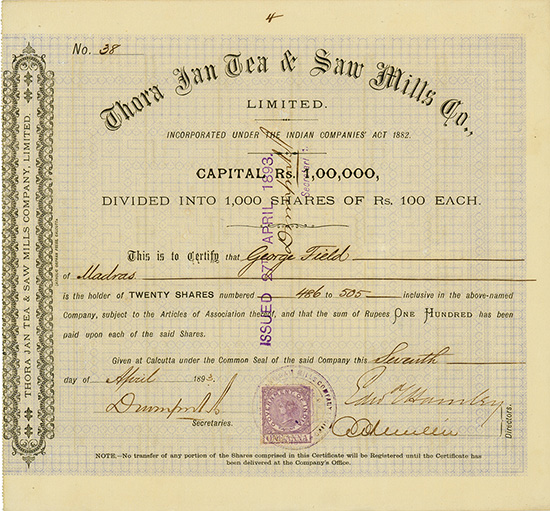 4
No. 38
Thora Jan Tea & Saw Mills Co.,
LIMITED.
INCORPORATED UNDER THE INDIAN COMPANIES' ACT 1882.
CAPITAL, Rs. 1,00,000,
DIVIDED INTO 1,000 SHARES OF Rs. 100 EACH.
This is to Certify that George Field
of Madras
is the holder of TWENTY SHARES numbered 486 to 505 inclusive in the above-named
Company, subject to the Articles of Association thereof, and that the sum of Rupees ONE HUNDRED has been
paid upon each of the said Shares.
Given at Calcutta under the Common Seal of the said Company this Seventh
day of April 1893.
Secretaries.
Directors.
ONE ANNA
NOTE.—No transfer of any portion of the Shares comprised in this Certificate will be Registered until the Certificate has
been delivered at the Company's Office.
THORA JAN TEA & SAW MILLS COMPANY, LIMITED.
ISSUED 27TH APRIL 1893.